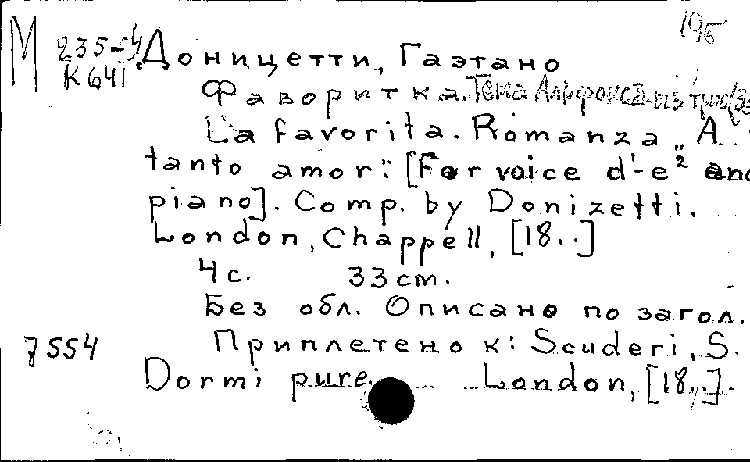 М 235-4
К 641
195
Доницетти, Гаэтано
Фаворитка. Тема Альфонса из
La favorita. Romanza „A
tanto amor": [For voice d'-e² and
piano]. Comp. by Donizetti.
London, Chappell, [18..]
4 с. 33 cm.
Без обл. Описано по загол.
7554
Приплетено к: Scuderi, S.
Dormi pure. London, [18..].